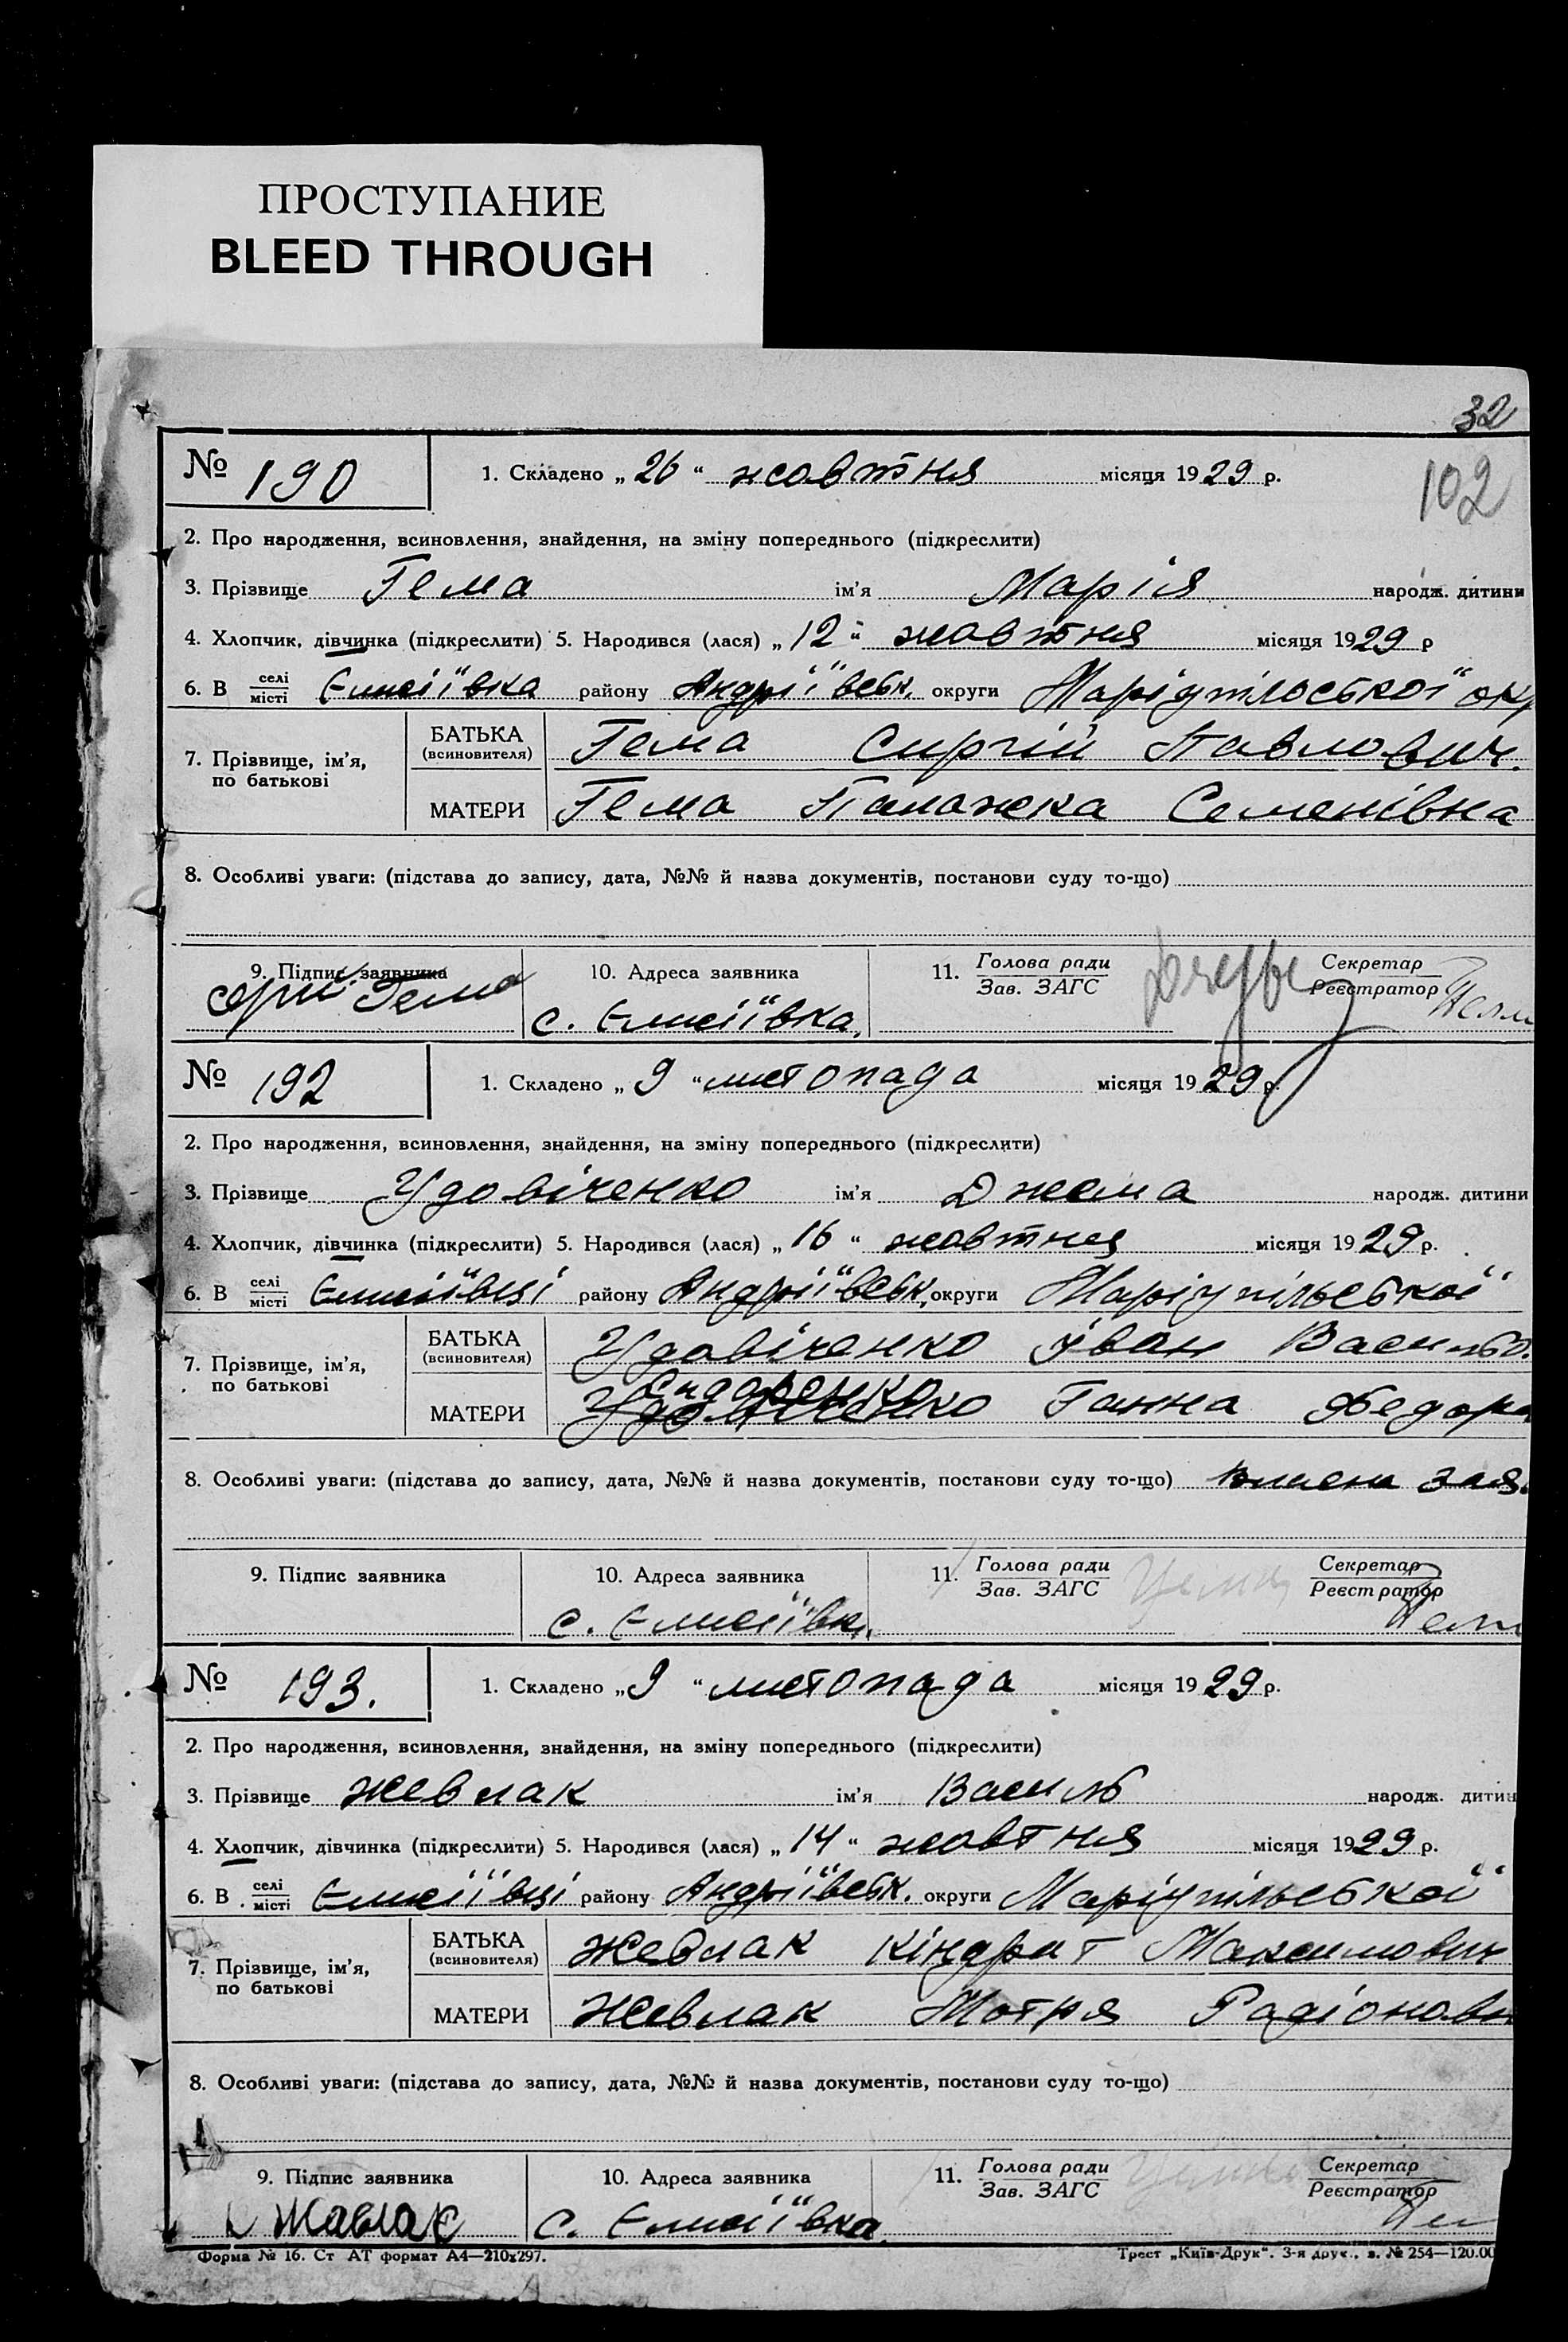 ПРОСТУПАНИЕ
BLEED THROUGH
32
102
№ 190 1. Складено „ 26 “ жовтня місяця 1929 р.
2. Про народження, всиновлення, знайдення, на зміну попереднього (підкреслити)
3. Прізвище Гема ім'я Марія народж. дитини
4. Хлопчик, дівчинка (підкреслити) 5. Народився (лася) „ 12 “ жовтня місяця 1929 р
6. В селі місті Єлисіївка району Андріївськ. округи Маріупільської окр
7. Прізвище, ім'я, по батькові
БАТЬКА (всиновителя) Гема Сиргій Павлович.
МАТЕРИ Гема Палажка Семенівна
8. Особливі уваги: (підстава до запису, дата, №№ й назва документів, постанови суду то-що)
9. Підпис заявника 10. Адреса заявника 11. Голова ради Зав. ЗАГС Секретар Реєстратор
Гема с. Єлисіївка.
№ 192 1. Складено „ 9 “ листопада місяця 1929 р.
2. Про народження, всиновлення, знайдення, на зміну попереднього (підкреслити)
3. Прізвище Удовіченко ім'я Джема народж. дитини
4. Хлопчик, дівчинка (підкреслити) 5. Народився (лася) „ 16 “ жовтня місяця 1929 р.
6. В селі місті Єлисіївці району Андріївськ. округи Маріупільської
7. Прізвище, ім'я, по батькові
БАТЬКА (всиновителя) Удовіченко Іван Василь
МАТЕРИ Удовіченко Ганна Федор
8. Особливі уваги: (підстава до запису, дата, №№ й назва документів, постанови суду то-що) власна зая.
9. Підпис заявника 10. Адреса заявника 11. Голова ради Зав. ЗАГС Секретар Реєстратор
с. Єлисіївк.
№ 193. 1. Складено „ 9 “ листопада місяця 1929 р.
2. Про народження, всиновлення, знайдення, на зміну попереднього (підкреслити)
3. Прізвище Жевлак ім'я Василь народж. дитин
4. Хлопчик, дівчинка (підкреслити) 5. Народився (лася) „ 14 “ жовтня місяця 1929 р.
6. В селі місті Єлисіївці району Андріївськ. округи Маріупільської
7. Прізвище, ім'я, по батькові
БАТЬКА (всиновителя) Жевлак Кіндрат Максимович
МАТЕРИ Жевлак Мотря Радіоновн
8. Особливі уваги: (підстава до запису, дата, №№ й назва документів, постанови суду то-що)
9. Підпис заявника 10. Адреса заявника 11. Голова ради Зав. ЗАГС Секретар Реєстратор
Жавлак с. Єлисіївка
Форма № 16. Ст АТ формат А4—210х297. Трест „Київ-Друк“. 3-я друк., з. № 254—120.00